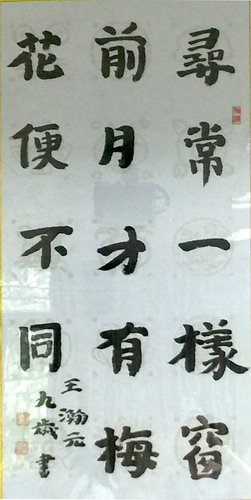 尋常一樣窗
前月才有梅
花便不同
王瀚元
九歲書